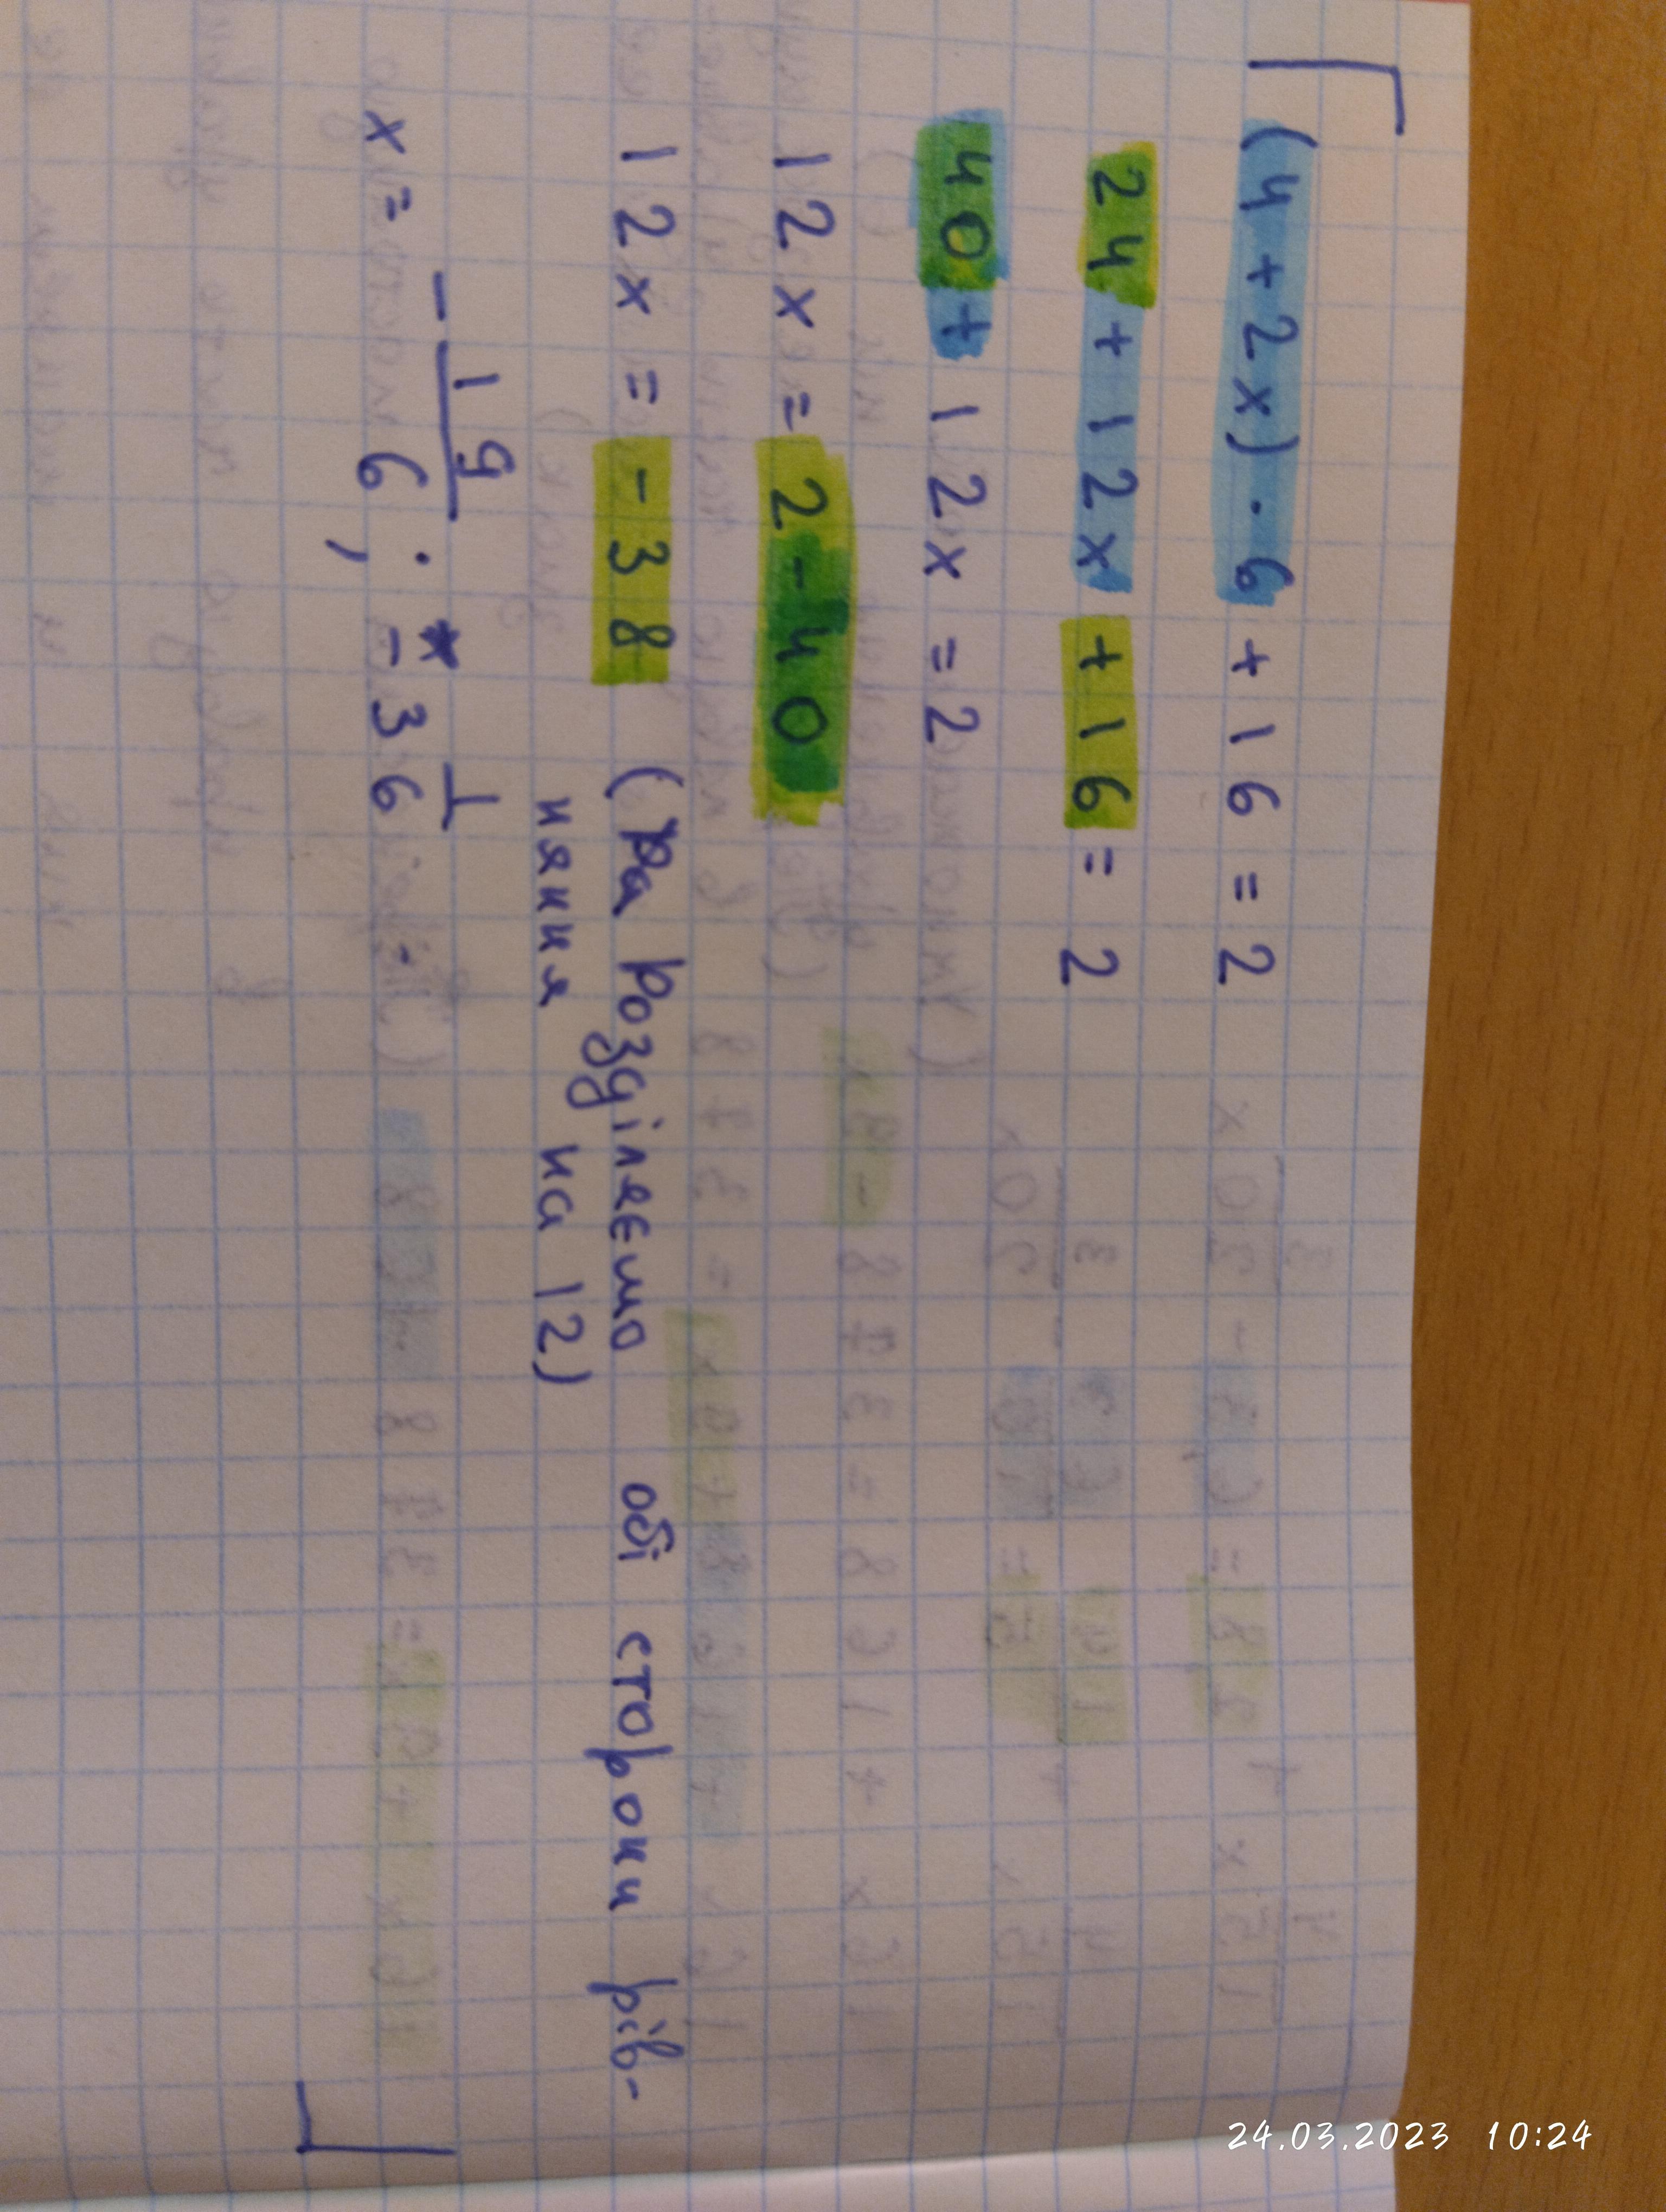 (4+2x)·6+16=2
24+12x+16=2
40+12x=2
12x=2-40
12x=-38 (розділяємо обі сторони рів-
няння на 12)
x=-19/6; -3 1/6
24.03.2023 10:24